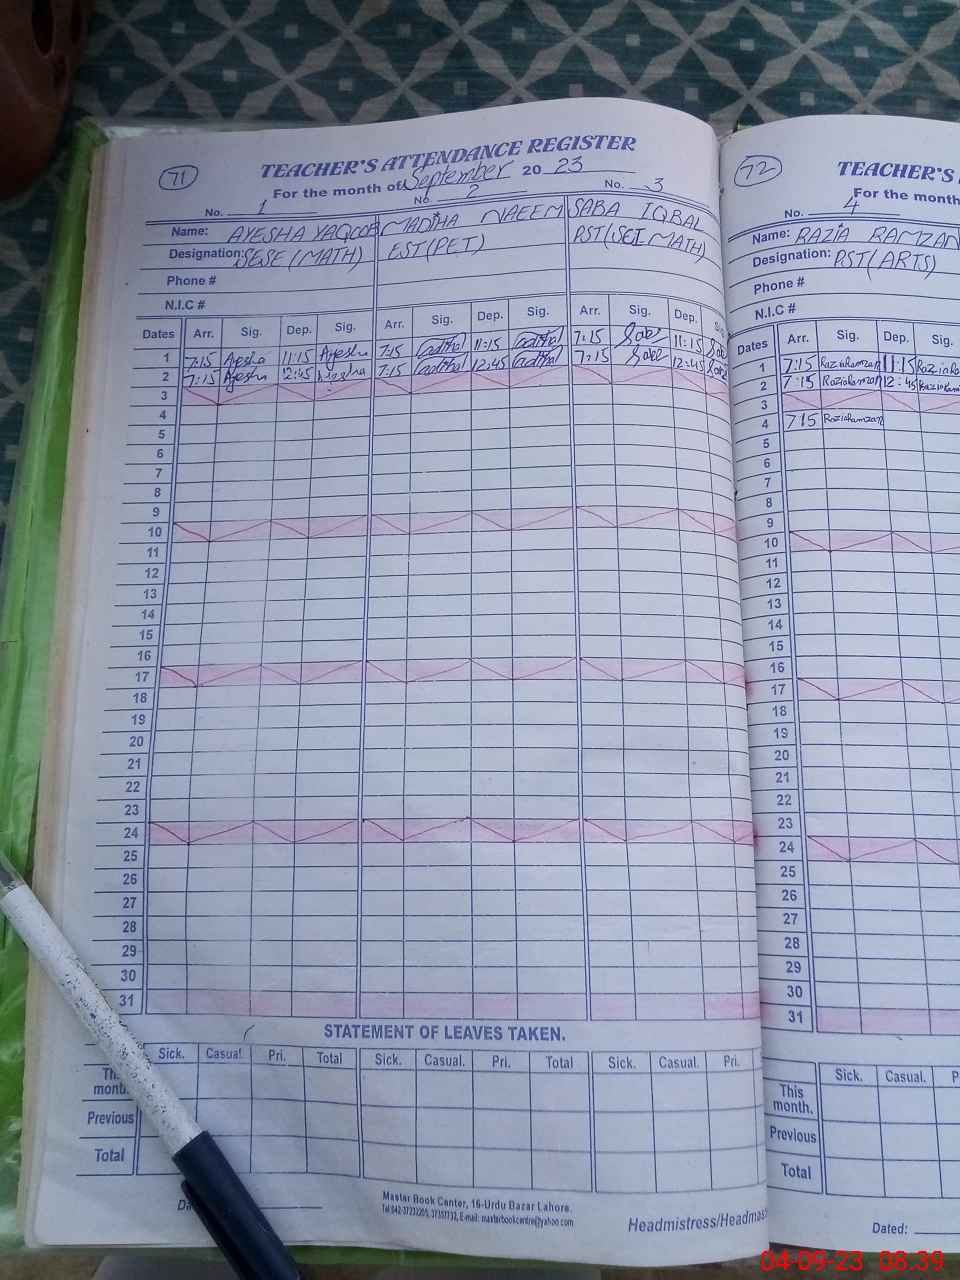 71
TEACHER'S ATTENDANCE REGISTER
For the month of September 20 23
No. 1 No. 2 No. 3
Name: AYESHA YAQOOB MADIHA NAEEM SABA IQBAL
Designation: SESE (MATH) EST (PET) PST (SEI MATH)
Phone #
N.I.C #
Dates Arr. Sig. Dep. Sig. Arr. Sig. Dep. Sig. Arr. Sig. Dep.
1 7:15 Ayesha 11:15 Ayesha 7:15 11:15 7:15 11:15
2 7:15 Ayesha 12:45 Ayesha 7:15 12:45 7:15 12:45
3
4
5
6
7
8
9
10
11
12
13
14
15
16
17
18
19
20
21
22
23
24
25
26
27
28
29
30
31
STATEMENT OF LEAVES TAKEN.
Sick. Casual. Pri. Total Sick. Casual. Pri. Total Sick. Casual. Pri.
month.
Previous
Total
Master Book Center, 16-Urdu Bazar Lahore.
E-mail: masterbookcentre@yahoo.com
72
TEACHER'S
For the month
No. 4
Name: RAZIA RAMZAN
Designation: PST (ARTS)
Phone #
N.I.C #
Dates Arr. Sig. Dep. Sig.
1 7:15 RaziaRamzan 11:15
2 7:15 RaziaRamzan 12:45
3
4 715 RaziaRamzan
5
6
7
8
9
10
11
12
13
14
15
16
17
18
19
20
21
22
23
24
25
26
27
28
29
30
31
Sick. Casual.
This
month.
Previous
Total
Dated:
04-09-23 08:39